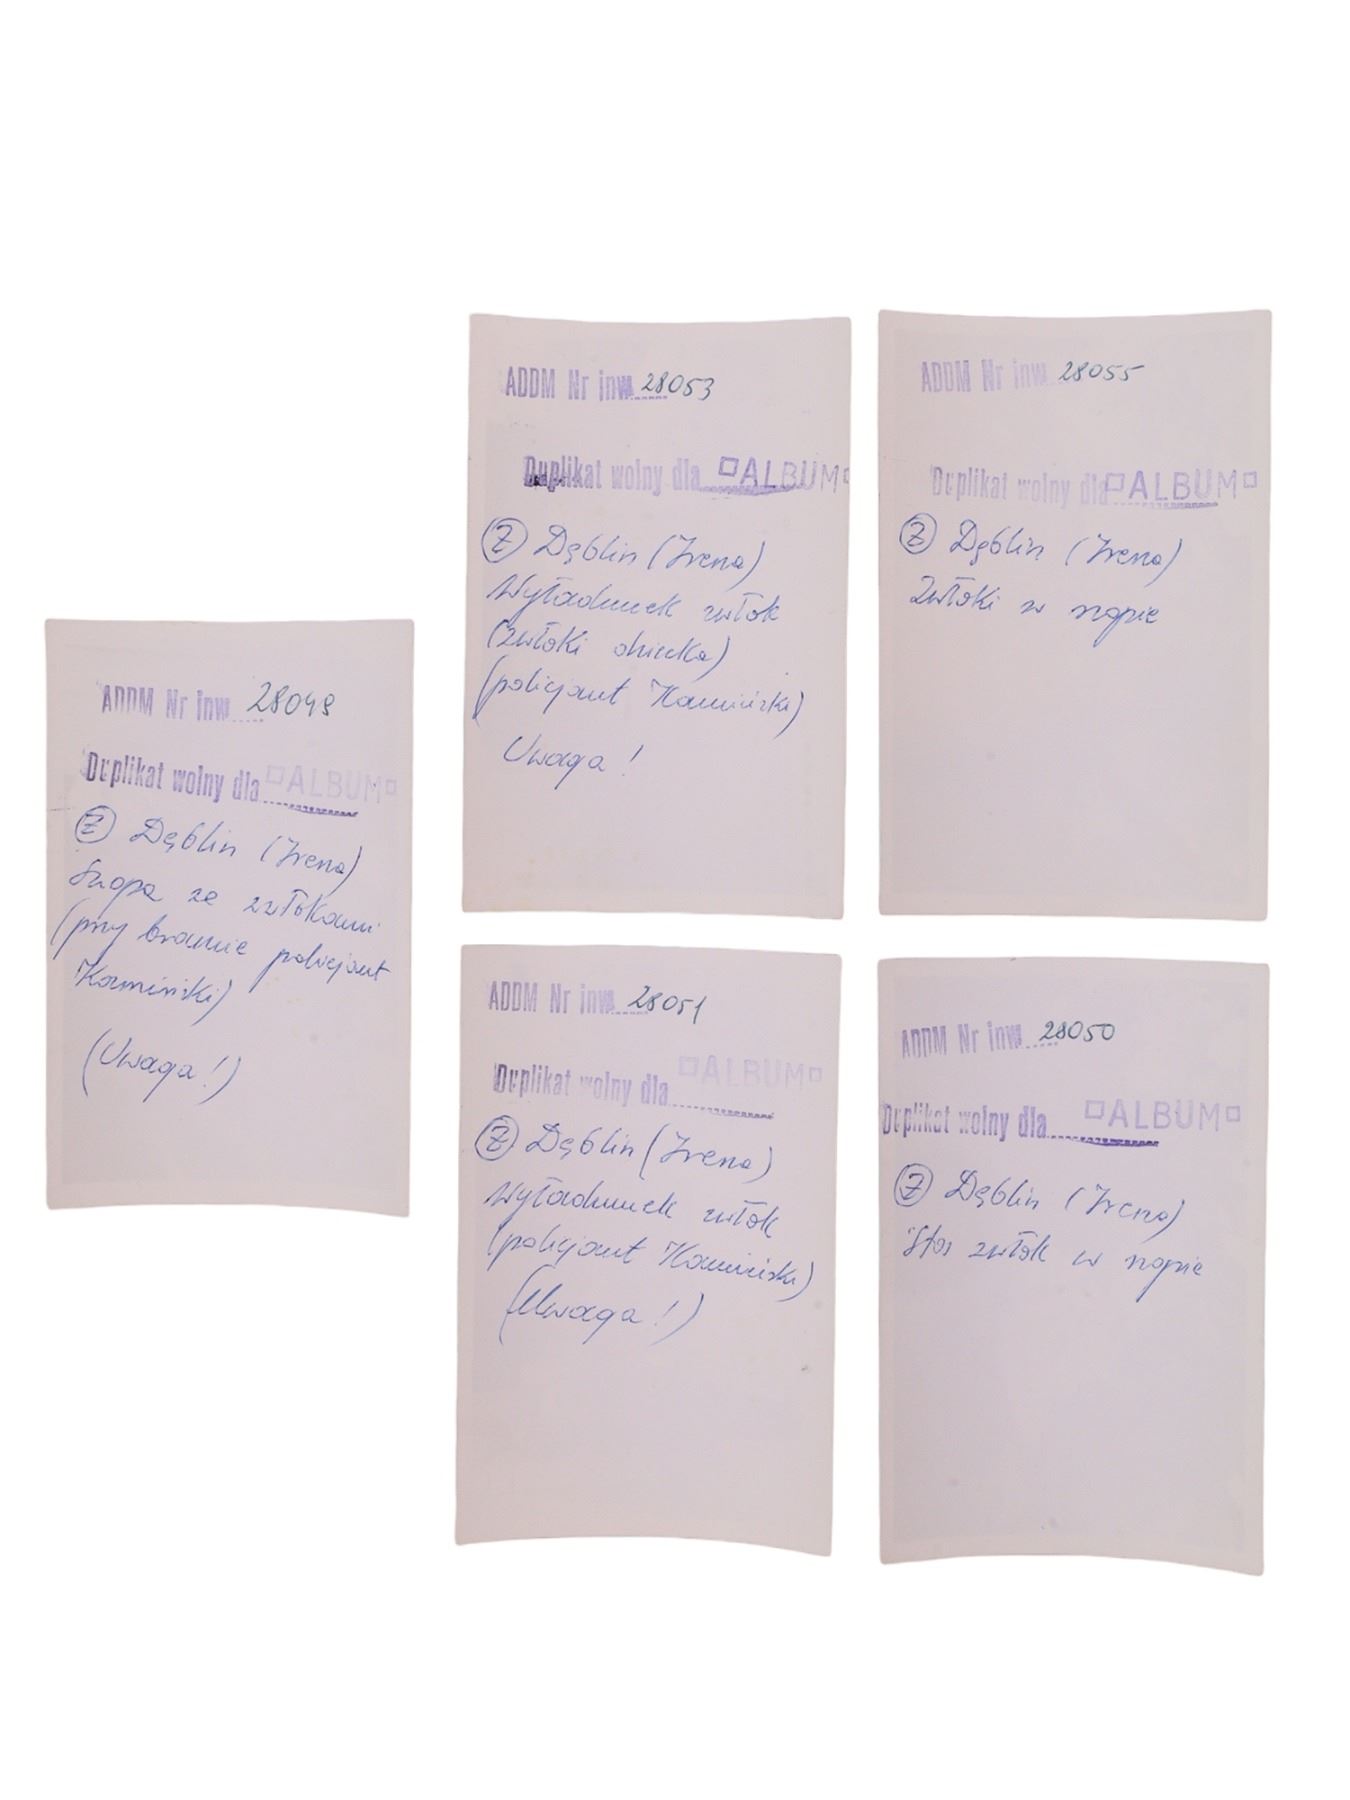 ADDM Nr inw. 28049
Duplikat wolny dla ALBUM
Ż Dęblin (Irena)
Szopa ze zwłokami
(przy bramie policjant
Kamiński)
(Uwaga!)
ADDM Nr inw. 28053
Duplikat wolny dla ALBUM
Ż Dęblin (Irena)
Wyładunek zwłok
(zwłoki dziecka)
(policjant Kamiński)
Uwaga!
ADDM Nr inw. 28055
Duplikat wolny dla ALBUM
Ż Dęblin (Irena)
Zwłoki w szopie
ADDM Nr inw. 28051
Duplikat wolny dla ALBUM
Ż Dęblin (Irena)
Wyładunek zwłok
(policjant Kamiński)
(Uwaga!)
ADDM Nr inw. 28050
Duplikat wolny dla ALBUM
Ż Dęblin (Irena)
Stos zwłok w szopie